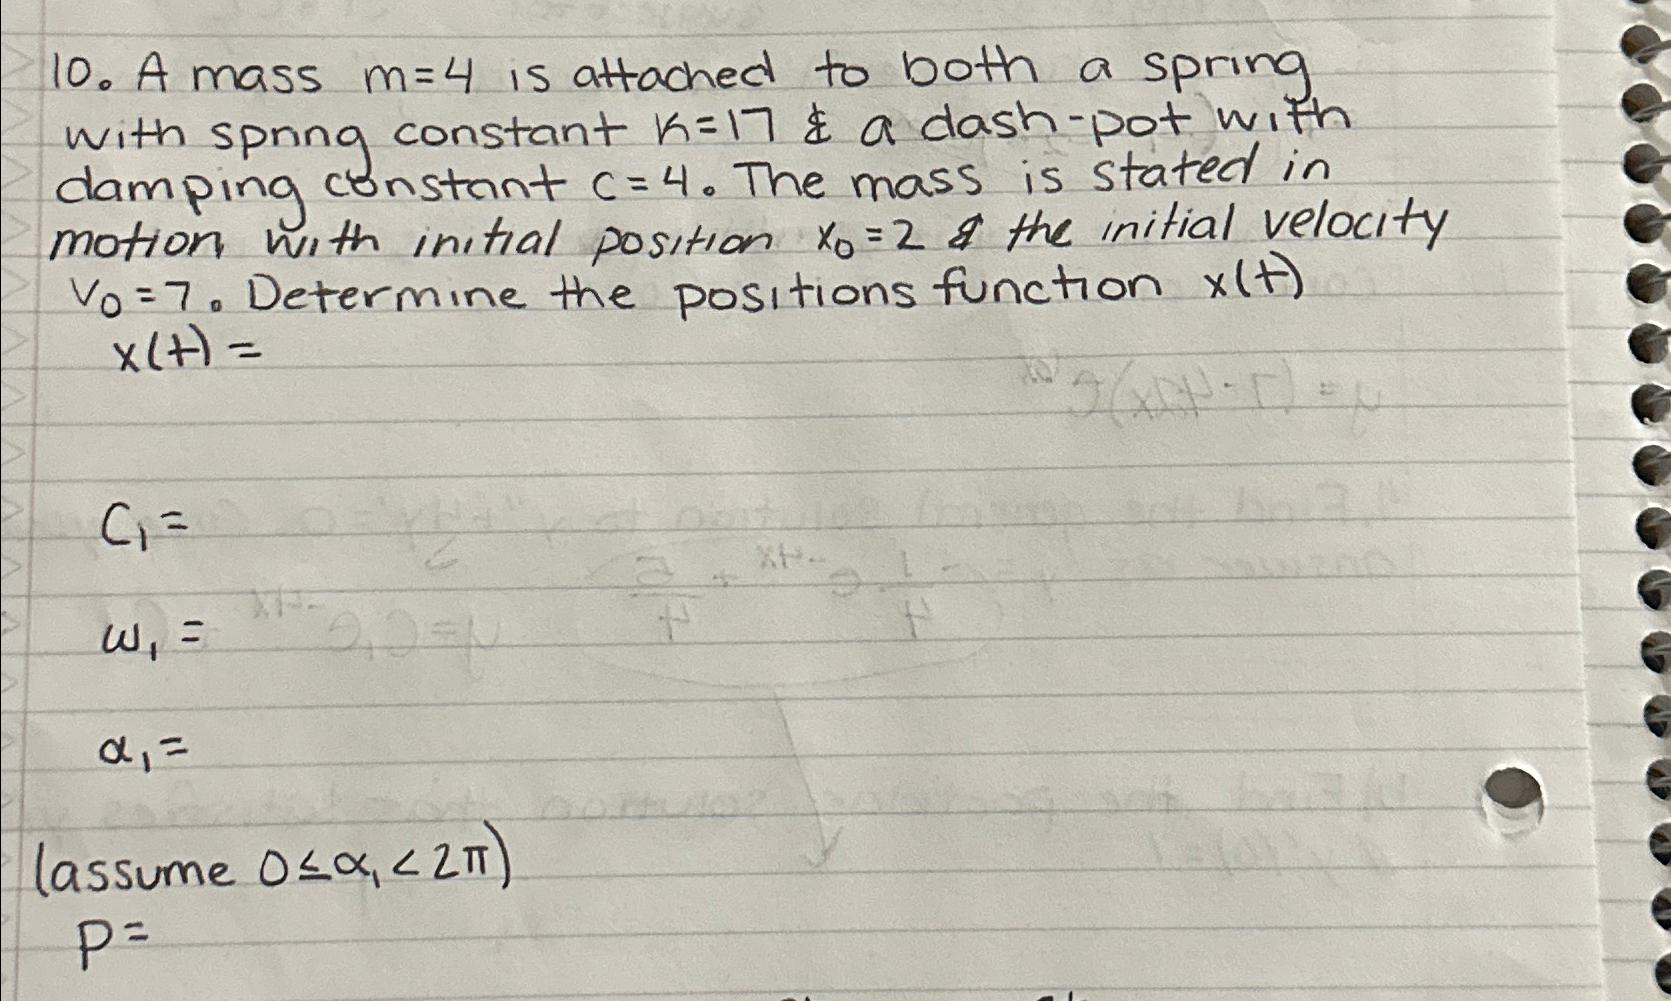 10. A mass m=4 is attached to both a spring
with spring constant k=17 & a dash-pot with
damping constant c=4. The mass is stated in
motion with initial position x₀=2 & the initial velocity
v₀=7. Determine the positions function x(t)
x(t)=
C₁=
ω₁=
α₁=
(assume 0≤α₁<2π)
p=